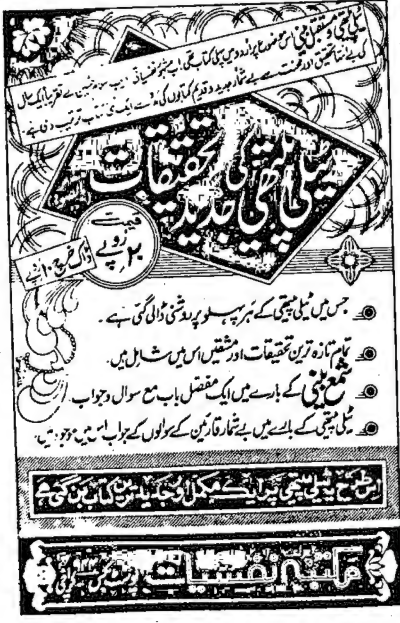 ٹیلی پیتھی و مستقل بینی اس موضوع پر اردو میں پہلی کتاب تھی، اب مشہور نفسیاتی ادیب
کی بے انتہا تحقیق اور محنت سے بے شمار جدید و قدیم کتابوں کی مدد سے ایک نئی کتاب ترتیب دی ہے
ٹیلی پیتھی کی جدید تحقیقات
قیمت
۲۰ روپے
ڈاک خرچ
جس میں ٹیلی پیتھی کے ہر پہلو پر روشنی ڈالی گئی ہے۔
تمام تازہ ترین تحقیقات اور مشقیں اس میں شامل ہیں.
شمع بینی کے بارے میں ایک مفصل باب مع سوال و جواب.
ٹیلی پیتھی کے بارے میں بے شمار قارئین کے سوالوں کے جواب اس میں موجود ہیں.
اس طرح یہ ٹیلی پیتھی پر ایک مکمل و جدید ترین کتاب بن گئی ہے
مکتبہ نفسیات پوسٹ بکس کراچی